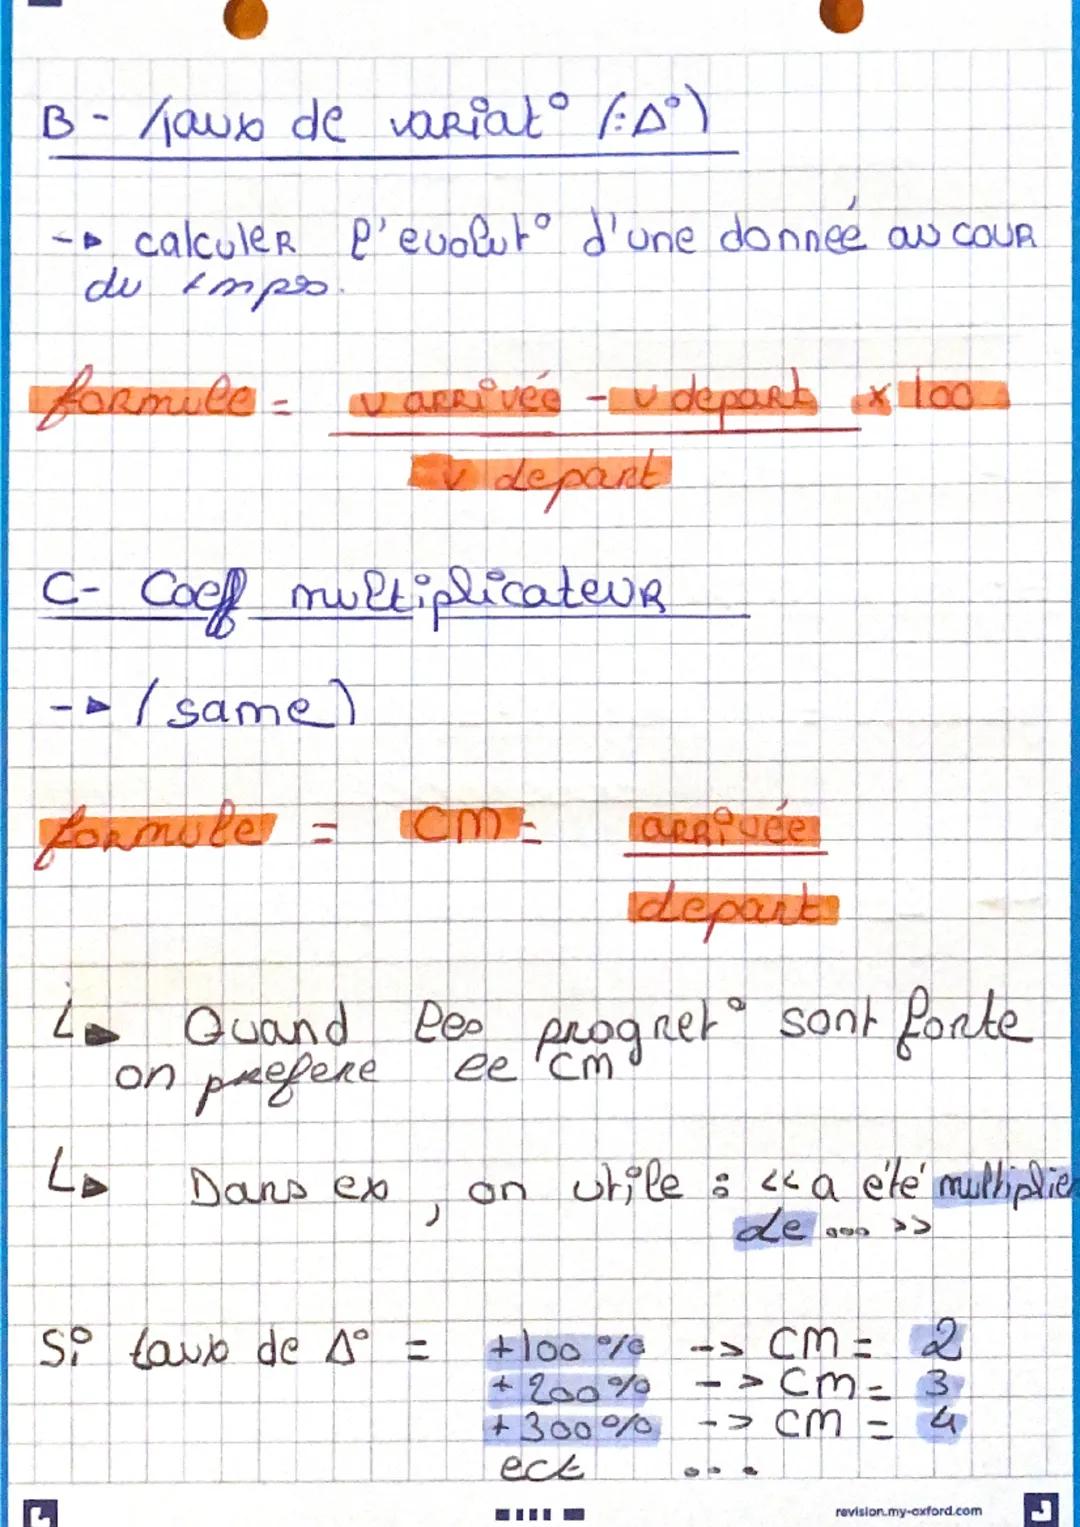 B - Taux de variat° (:Δ°)
-▸ calculer l'evolut° d'une donnée au cour
du tmps.
formule = v arrivée - v depart x 100
v depart
C- Coeff multiplicateur
-▸ (same)
formule = CM = arrivée
depart
↳ Quand les progret° sont forte
on prefere le CM
↳ Dans ex, on utile : << a été multiplier
de ... >>
Si taux de Δ° = +100 % --> CM = 2
+ 200 % --> CM = 3
+ 300 % --> CM = 4
ect ...
revision.my-oxford.com